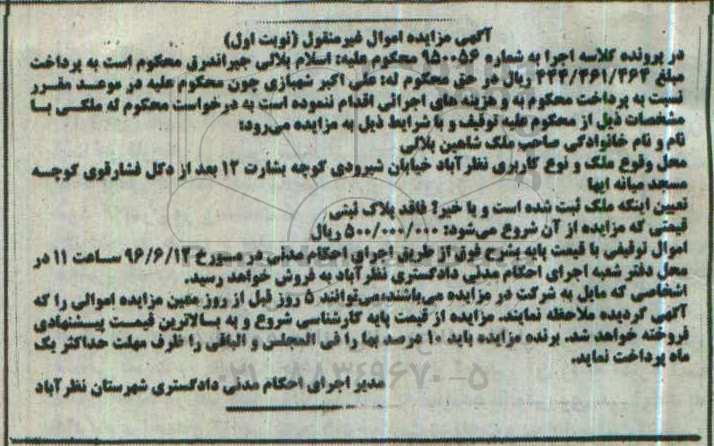 آگهی مزایده اموال غیرمنقول (نوبت اول)
در پرونده کلاسه اجرا به شماره ۹۵۰۰۵۶ محکوم علیه: اسلام بلالی جیراندرق محکوم است به پرداخت
مبلغ ۴۴۴/۴۶۱/۴۶۴ ریال در حق محکوم له: علی اکبر شهبازی چون محکوم علیه در موعد مقرر
نسبت به پرداخت محکوم به و هزینه های اجرائی اقدام ننموده است به درخواست محکوم له ملکی با
مشخصات ذیل از محکوم علیه توقیف و با شرایط ذیل به مزایده می‌رود:
نام و نام خانوادگی صاحب ملک شاهین بلالی
محل وقوع ملک و نوع کاربری نظرآباد خیابان شیرودی کوچه بشارت ۱۲ بعد از دکل فشارقوی کوچه
مسجد میانه ایها
تعیین اینکه ملک ثبت شده است و یا خیر؟ فاقد پلاک ثبتی
قیمتی که مزایده از آن شروع می‌شود: ۵۰۰/۰۰۰/۰۰۰ ریال
اموال توقیفی با قیمت پایه بشرح فوق از طریق اجرای احکام مدنی در مورخ ۹۶/۶/۱۳ ساعت ۱۱ در
محل دفتر شعبه اجرای احکام مدنی دادگستری نظرآباد به فروش خواهد رسید.
اشخاصی که مایل به شرکت در مزایده می‌باشند،می‌توانند ۵ روز قبل از روز معین مزایده اموالی را که
آگهی گردیده ملاحظه نمایند. مزایده از قیمت پایه کارشناسی شروع و به بالاترین قیمت پیشنهادی
فروخته خواهد شد. برنده مزایده باید ۱۰ درصد بها را فی المجلس و الباقی را ظرف مهلت حداکثر یک
ماه پرداخت نماید.
مدیر اجرای احکام مدنی دادگستری شهرستان نظرآباد
۰۲۱-۸۸۳۴۹۶۷۰-۵